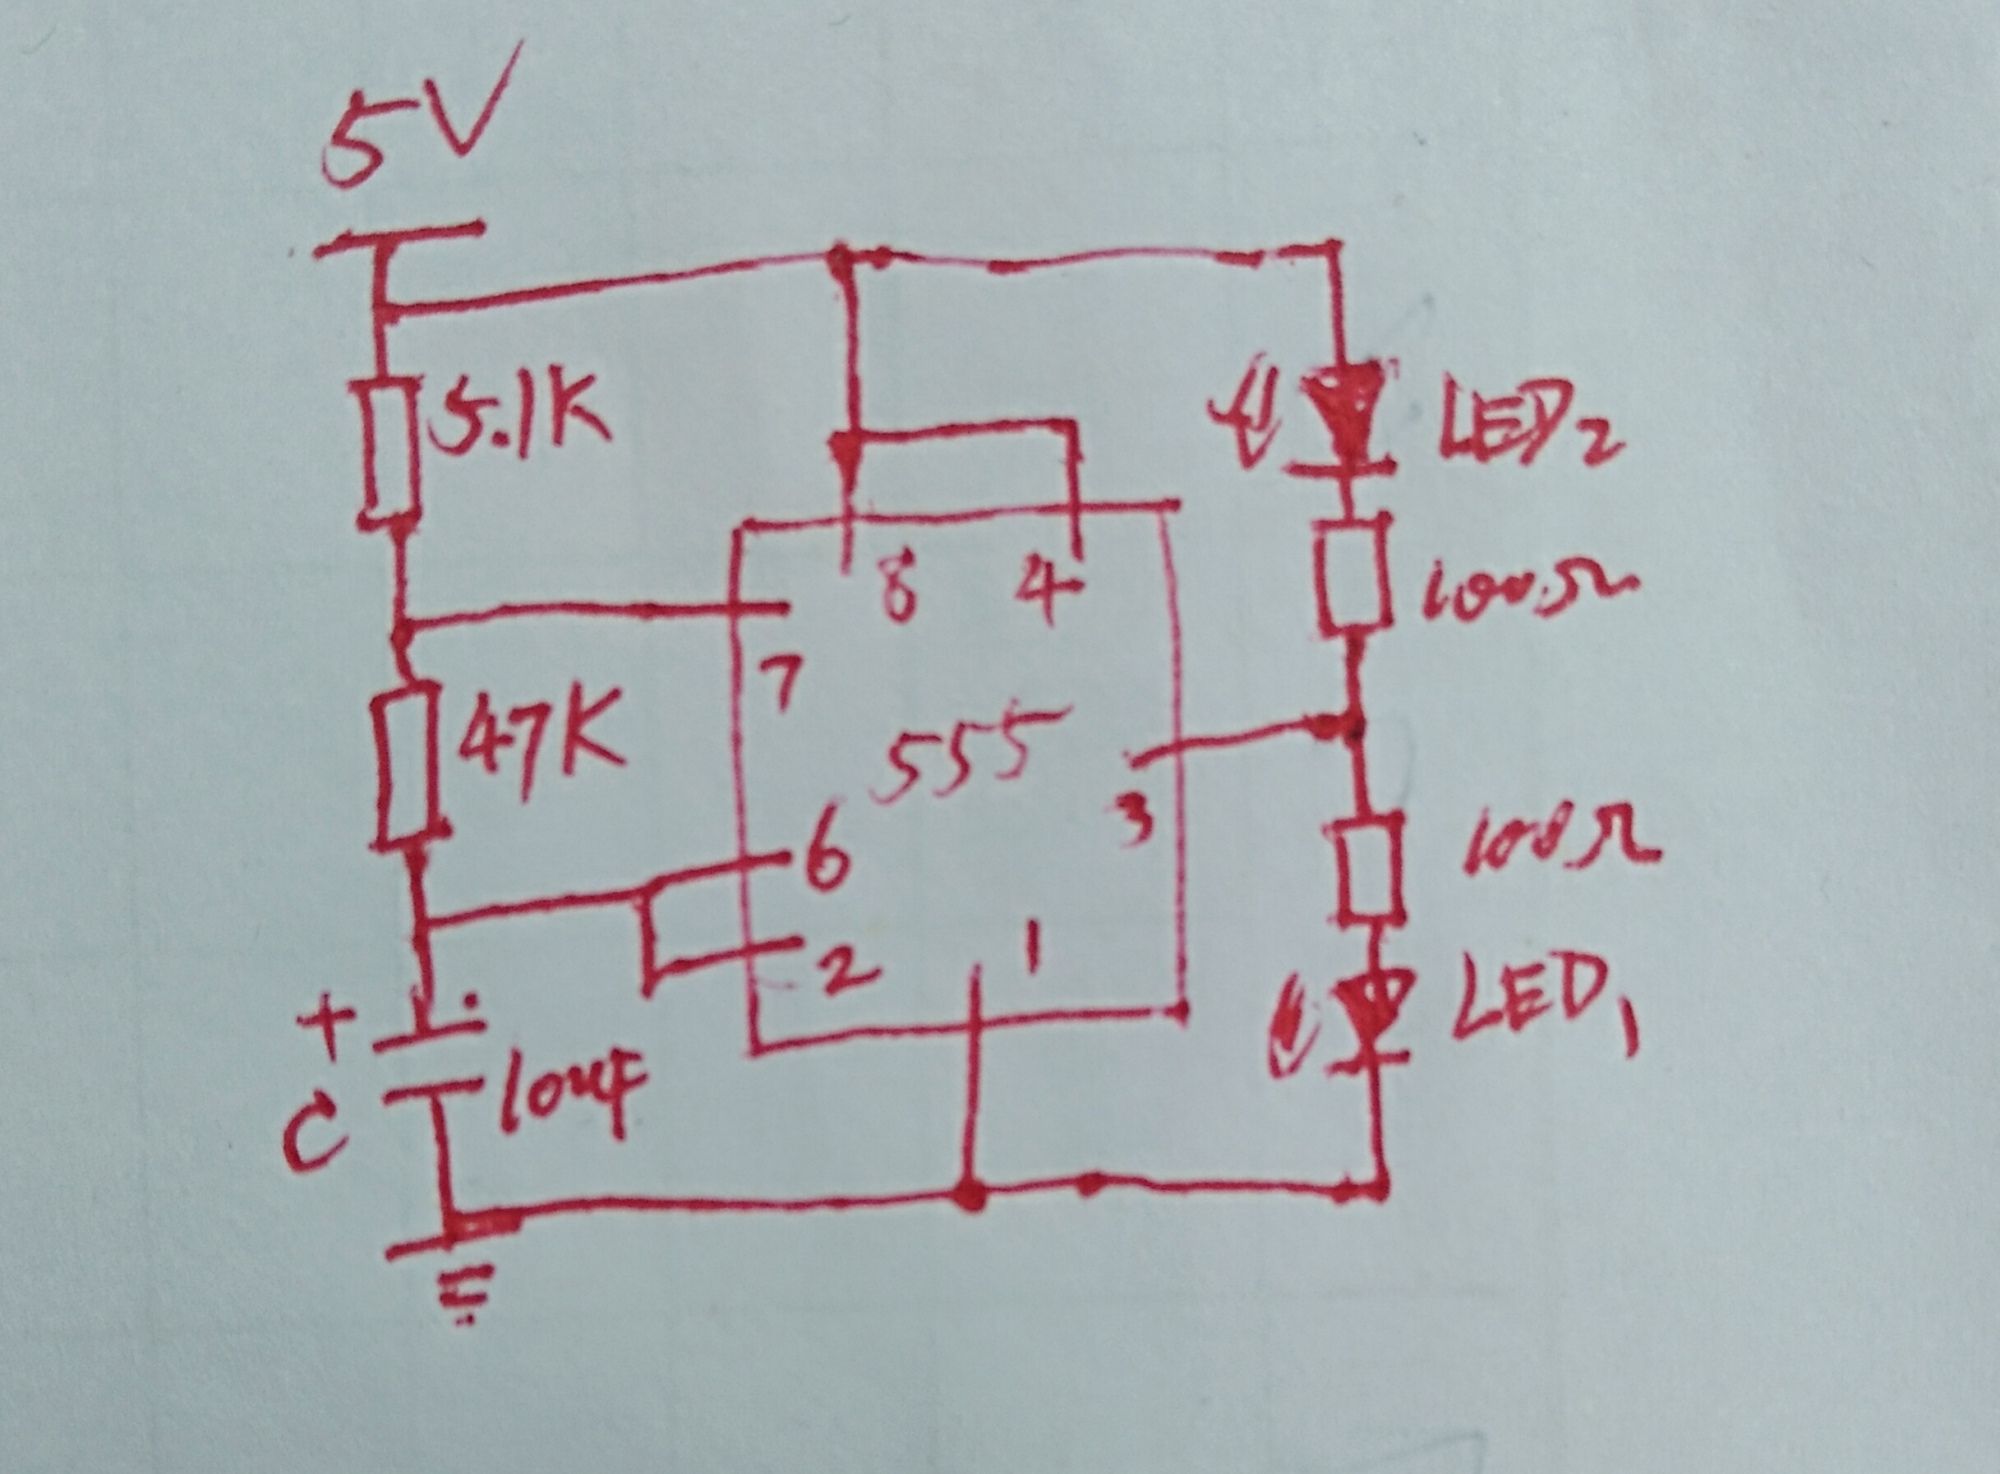 5V
5.1K
LED2
8
4
100Ω
7
47K
555
3
6
100Ω
2
1
LED1
+
C
10uF